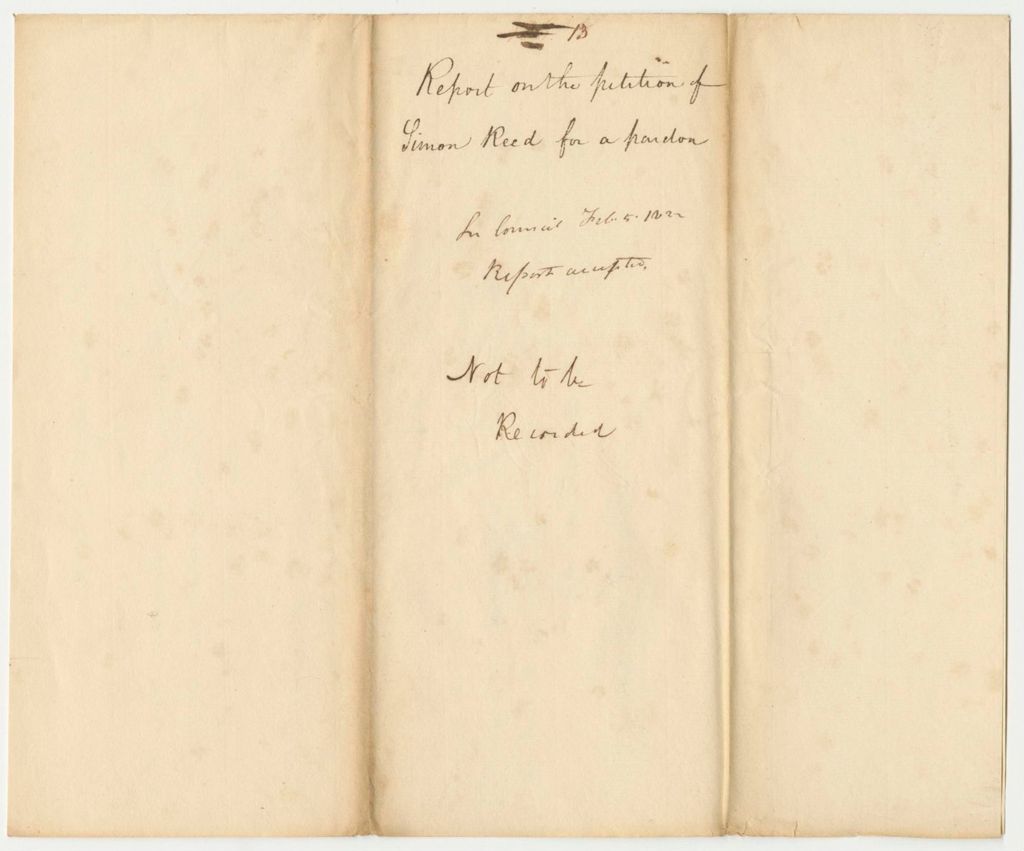 13
Report on the petition of
Simon Reed for a pardon
In Council Feb. 5. 1822
Report accepted.
Not to be
Recorded